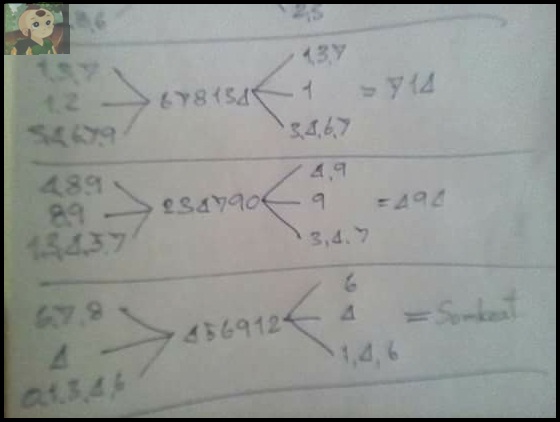 8,6 2,5
1,3,7 1,3,7
1,2 678134 1 = 714
3,4,6,7,9 3,4,6,7
4,8,9 4,9
8,9 234790 9 = 494
1,3,4,5,7 3,4,7
6,7,8 6
4 456912 4 = Somkeat
0,1,3,4,6 1,4,6